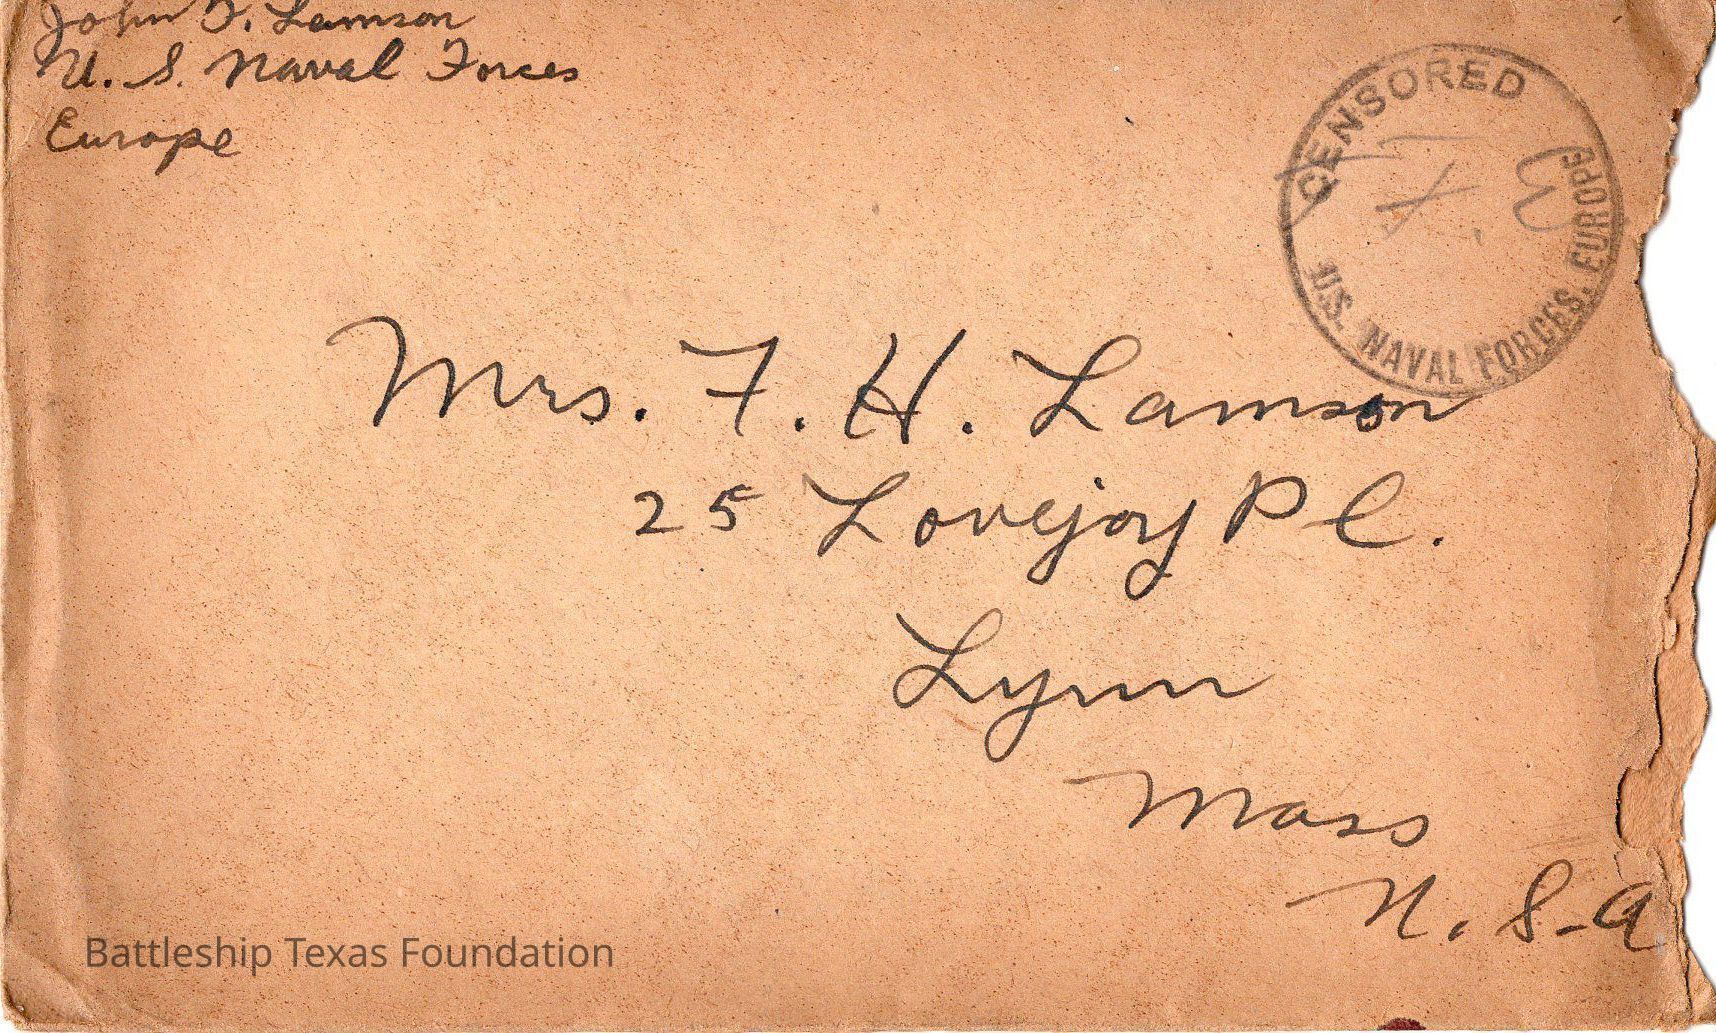 John D. Lamson
U. S. Naval Forces
Europe
CENSORED
U.S. NAVAL FORCES, EUROPE
Mrs. F. H. Lamson
25 Lovejoy Pl.
Lynn
Mass
U. S. A
Battleship Texas Foundation